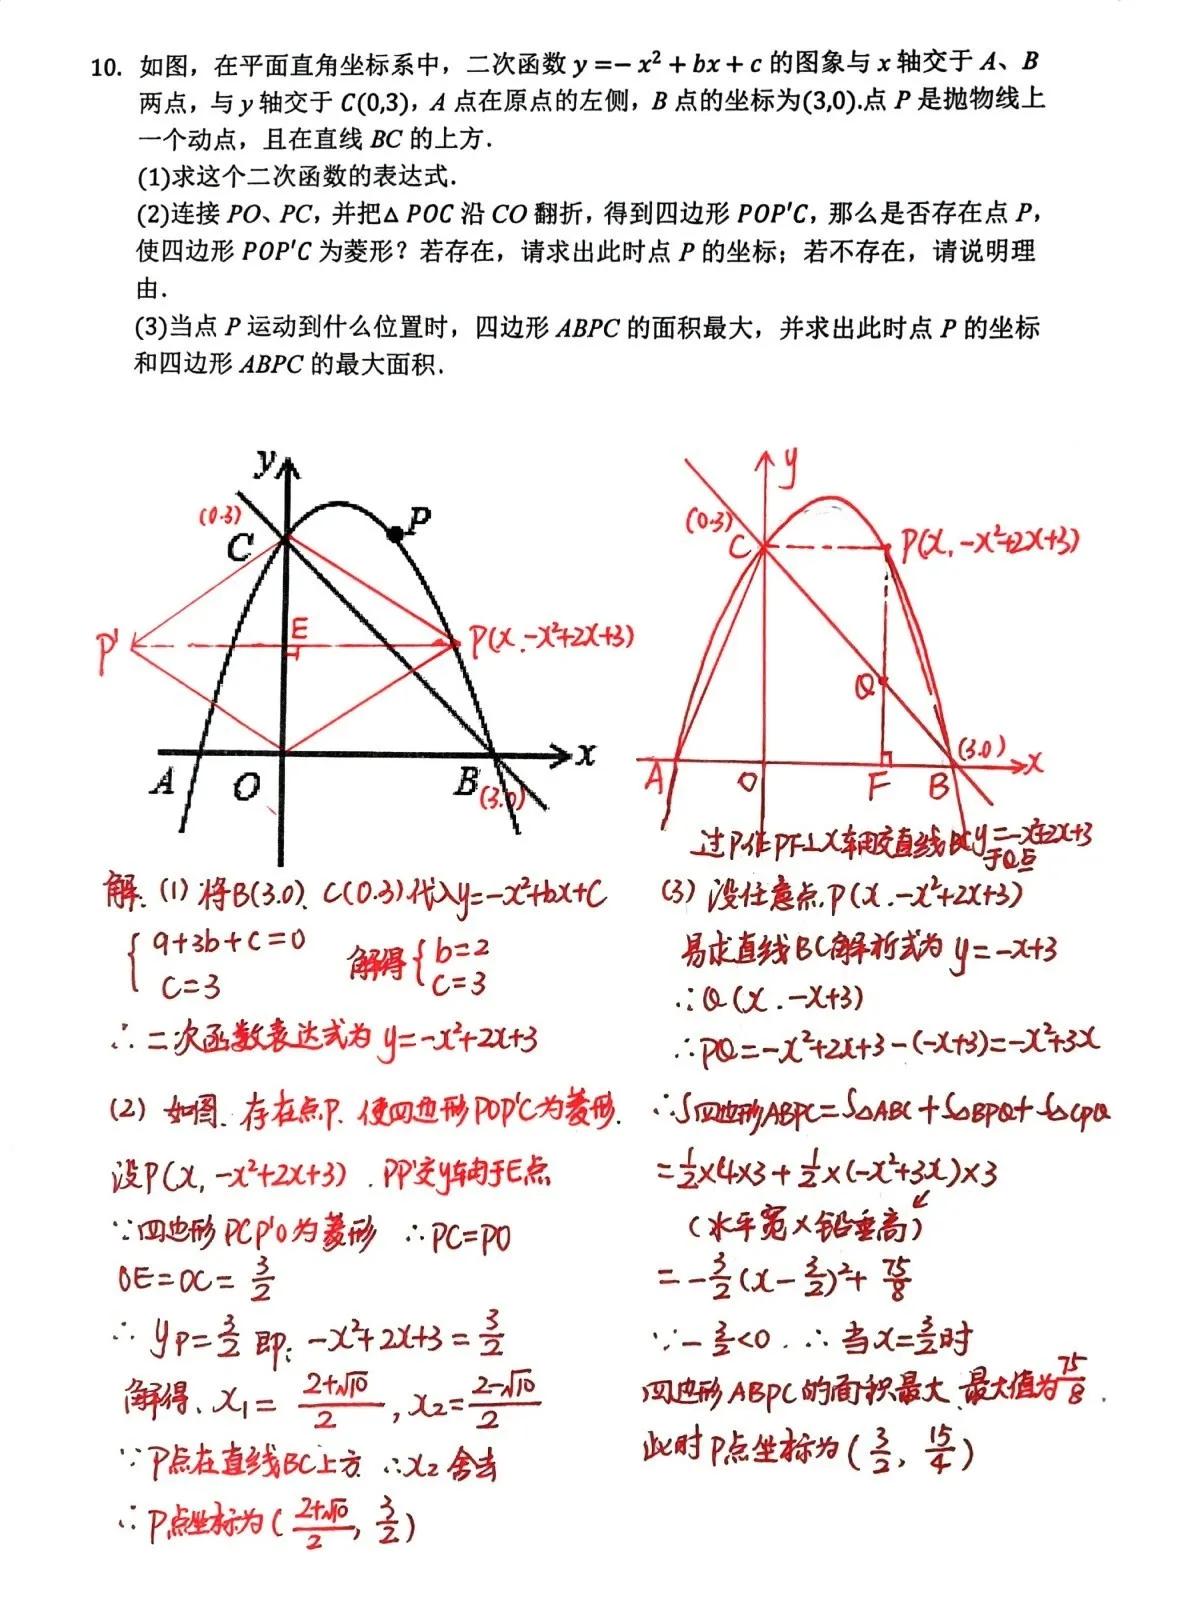 10. 如图，在平面直角坐标系中，二次函数 y =− x² + bx + c 的图象与 x 轴交于 A、B
两点，与 y 轴交于 C(0,3)，A 点在原点的左侧，B 点的坐标为(3,0).点 P 是抛物线上
一个动点，且在直线 BC 的上方.
(1)求这个二次函数的表达式.
(2)连接 PO、PC，并把△ POC 沿 CO 翻折，得到四边形 POP′C，那么是否存在点 P，
使四边形 POP′C 为菱形？若存在，请求出此时点 P 的坐标；若不存在，请说明理
由.
(3)当点 P 运动到什么位置时，四边形 ABPC 的面积最大，并求出此时点 P 的坐标
和四边形 ABPC 的最大面积.
y
(0.3)
C
P
E
P'
P(x.-x²+2x+3)
A
O
B
(3.0)
x
y
(0.3)
C
P(x.-x²+2x+3)
Q
(3.0)
A
O
F
B
x
过P作PF⊥x轴交直线BC y=-x²+2x+3
于Q点
解. (1) 将B(3.0)、C(0.3)代入y=-x²+bx+C
{ 9+3b+c=0
c=3
解得 { b=2
c=3
∴ 二次函数表达式为 y=-x²+2x+3
(2) 如图、存在点P、使四边形POP'C为菱形.
设P(x, -x²+2x+3) . PP'交y轴于E点
∵四边形PCP'O为菱形 ∴PC=PO
OE=OC= 3/2
∴ yP=3/2 即: -x²+2x+3=3/2
解得、x₁= (2+√10)/2 , x₂=(2-√10)/2
∵P点在直线BC上方 ∴x₂舍去
∴P点坐标为( (2+√10)/2, 3/2)
(3) 设任意点P(x.-x²+2x+3)
易求直线BC解析式为 y=-x+3
∴Q(x.-x+3)
∴PQ=-x²+2x+3-(-x+3)=-x²+3x
∴S四边形ABPC=S△ABC+S△BPQ+S△CPQ
=1/2×4×3+1/2×(-x²+3x)×3
(水平宽×铅垂高)
=-3/2(x-3/2)²+75/8
∵-3/2<0 . ∴当x=3/2时
四边形ABPC的面积最大、最大值为75/8.
此时P点坐标为(3/2, 15/4)